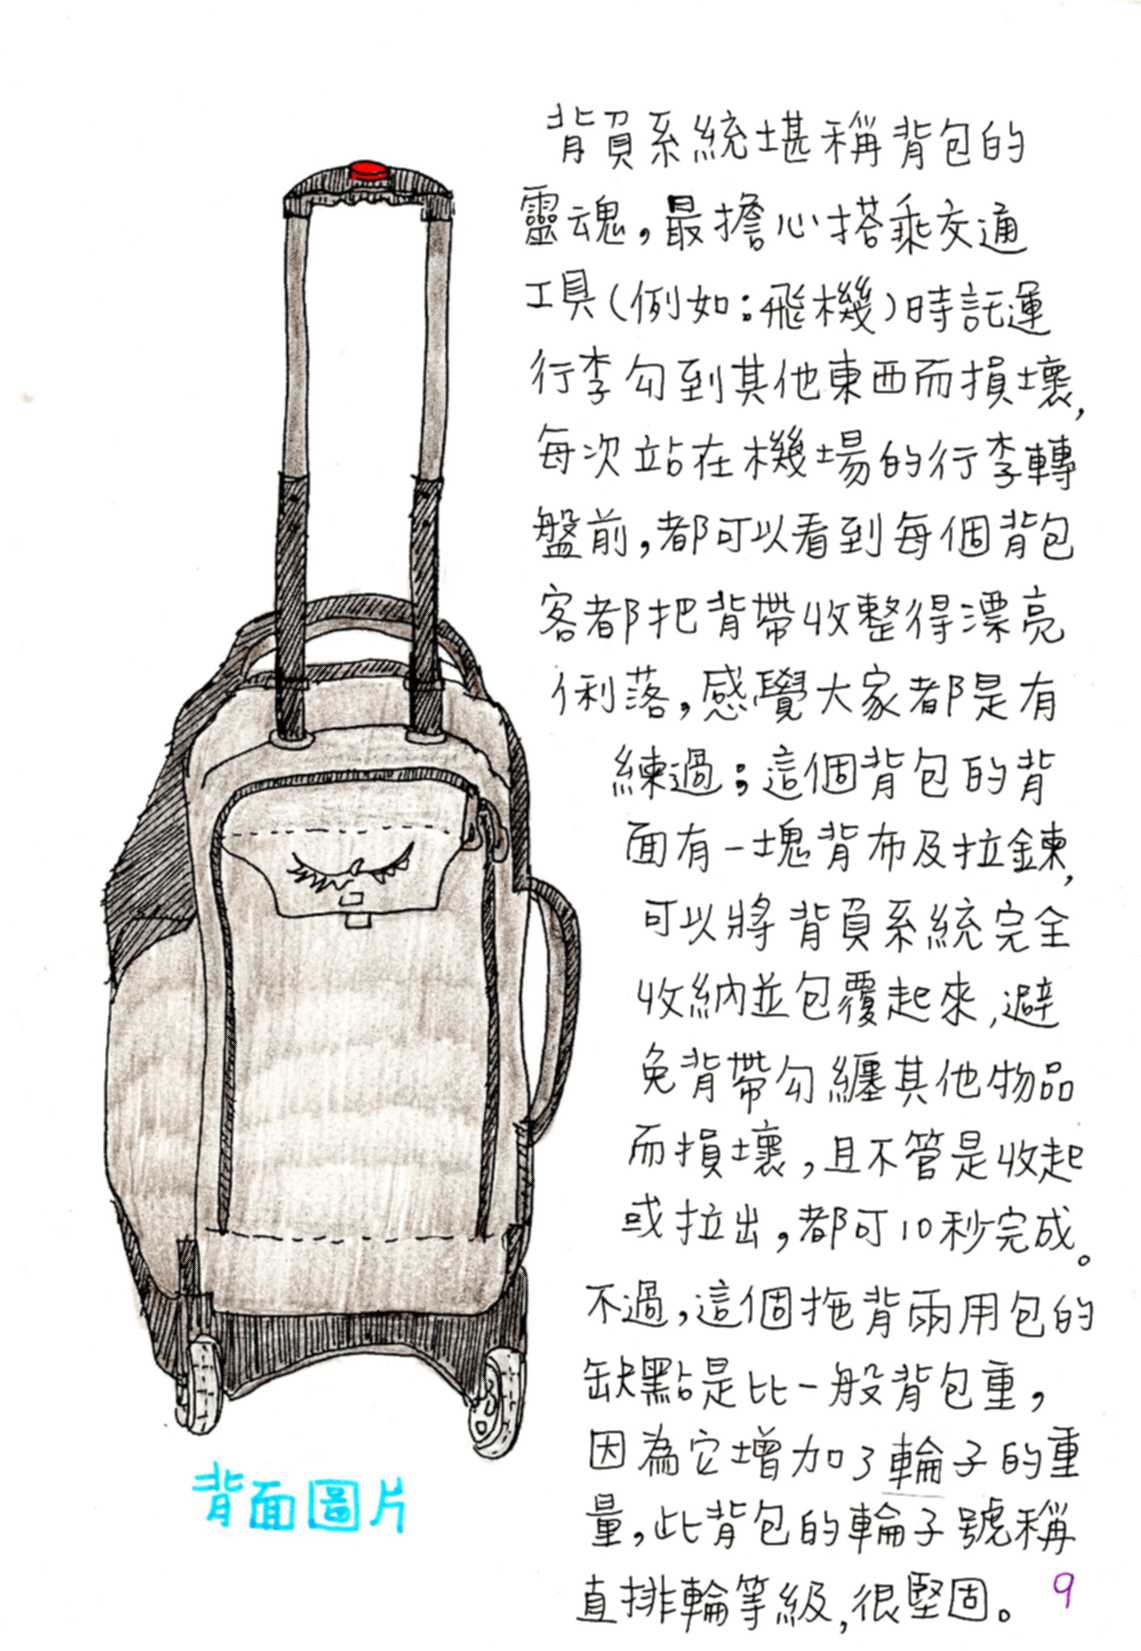 背負系統堪稱背包的
靈魂,最擔心搭乘交通
工具(例如:飛機)時託運
行李勾到其他東西而損壞,
每次站在機場的行李轉
盤前,都可以看到每個背包
客都把背帶收整得漂亮
俐落,感覺大家都是有
練過;這個背包的背
面有一塊背布及拉鍊,
可以將背負系統完全
收納並包覆起來,避
免背帶勾纏其他物品
而損壞,且不管是收起
或拉出,都可10秒完成。
不過,這個拖背兩用包的
缺點是比一般背包重,
因為它增加了輪子的重
量,此背包的輪子號稱
直排輪等級,很堅固。
背面圖片
9